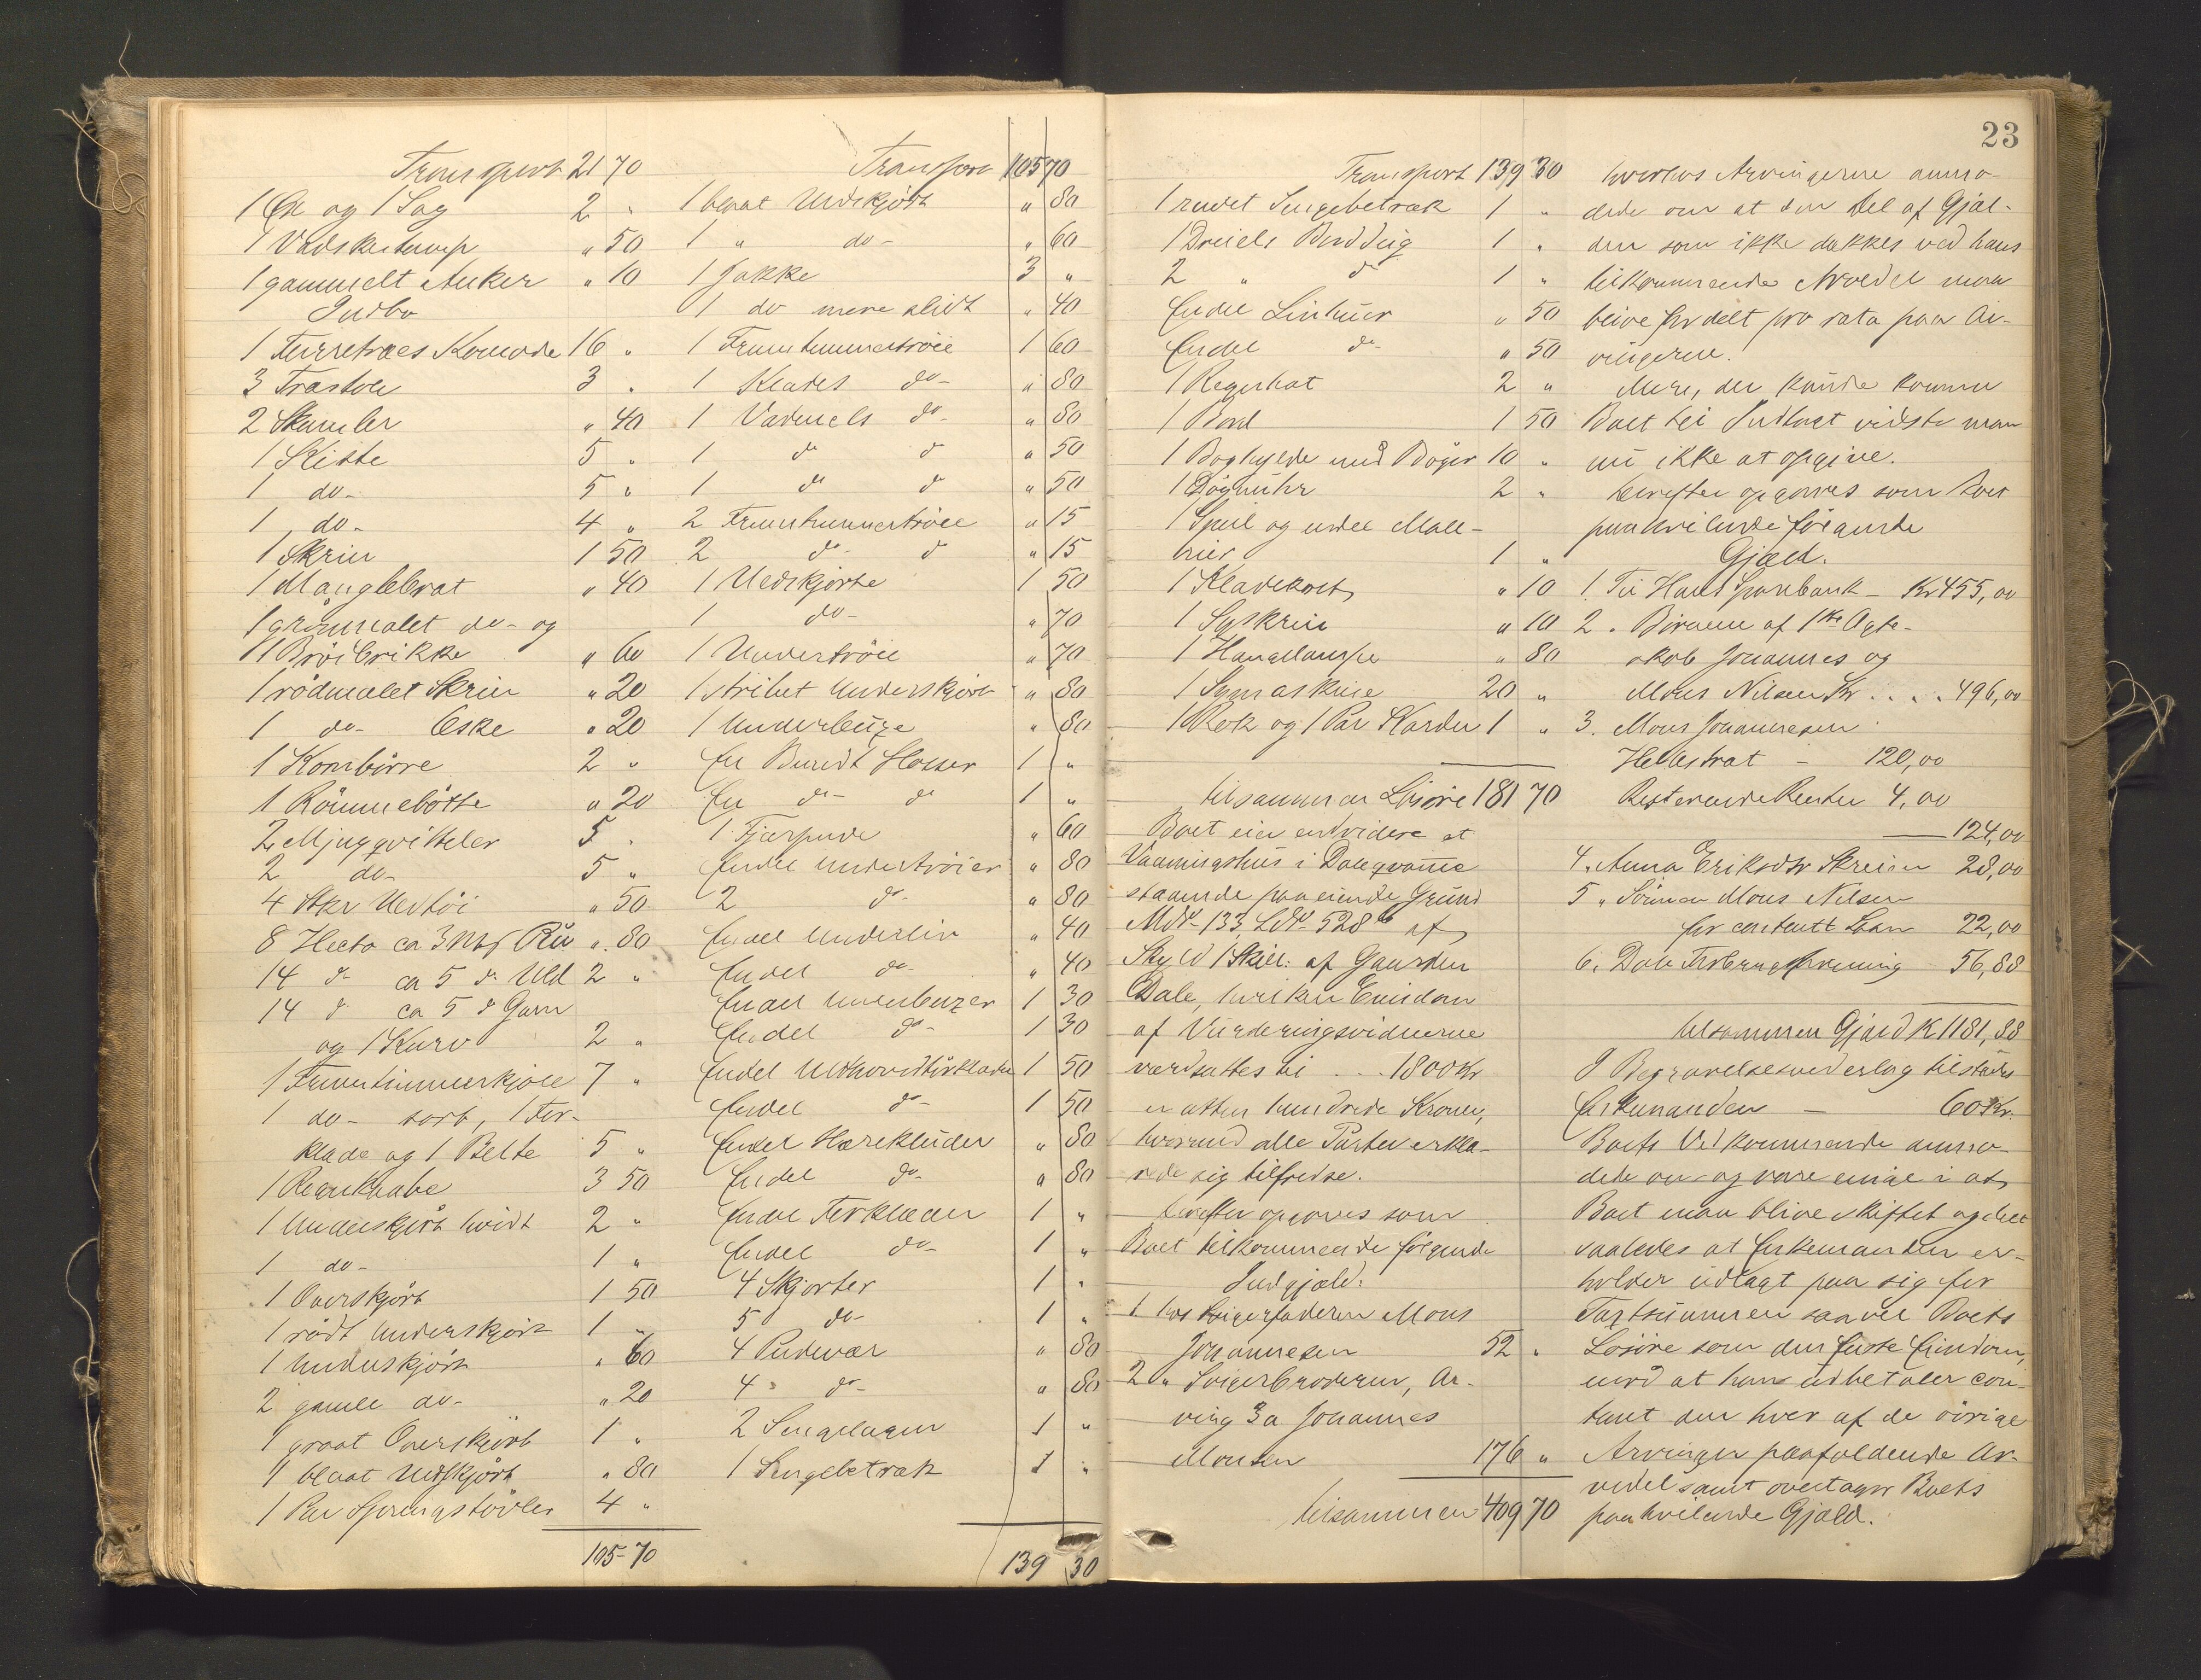 Transport 21 70
1 Øx og 1 Sag 2 "
1 Vadskestamp " 50
1 gammelt Anker " 10
Indbo
1 Furretræes Komode 16 "
3 Træstole 3 "
2 Skamler " 40
1 Kiste 5 "
1 do- 5 "
1 do- 4 "
1 Skrin 1 50
1 Manglebræt " 40
1 grønmalet do- og
1 Brødbrikke " 60
1 rödmalet Skrin " 20
1 do- Eske " 20
1 Kornbörre 2 "
1 Römmebötte " 20
2 5 "
2 do- 5 "
4 Stkr Uldtöi " 50
8 Hecto ca 3 Mk " 80
14 do ca 5 do Uld 2 "
14 do ca 5 do Garn
og 1 Kurv 2 "
1 Fruentimmerkjole 7 "
1 do- sort, 1 For-
klæde og 1 Belte 5 "
1 Regnkaabe 3 50
1 Underskjört hvidt 2 "
1 do- 1 "
1 Overskjört 1 50
1 rödt Underskjört 1 "
1 Underskjört " 60
2 gamle do- " 20
1 graat Overskjört 1 "
1 blaat Uldskjört " 80
1 Par Springstövler 4 "
105-70
Transport 105 70
1 blaat Uldskjört " 80
1 " do- " 60
1 Jakke 3 "
1 do mere slidt " 40
1 Fruentimmertröie 1 60
1 Klædes do- " 80
1 Vadmels do- " 80
1 do do " 50
1 do do " 50
2 Fruentimmertröie " 15
2 do- do " 15
1 Uldskjorte 1 50
1 do- " 70
1 Undertröie " 70
1 stribet Underskjört " 80
1 Underbuxe " 80
En Bundt Hoser 1 "
En do- do 1 "
1 Fjærpude " 60
Endel Undertröier " 80
2 do- " 80
Endel Underliv " 40
Endel do- " 40
Endel Underbuxer 1 30
Endel do- 1 30
Endel Uldhovedtörklæder 1 50
Endel do- 1 50
Endel Hærekluder " 80
Endel do- " 80
Endel Forklæder 1 "
Endel do- 1 "
4 Skjorter 1 "
5 do- 1 "
4 Pudevær " 80
4 do- " 80
2 Sengelagen 1 "
1 Sengebetræk 1 "
139 30
23
Transport 139 30
1 rudet Sengebetræk 1 "
1 Dreiels Borddug 1 "
2 " do 1 "
Endel Linhuer " 50
Endel do- " 50
1 Regnhat 2 "
1 Bord 1 50
1 Boghylde med Bøger 10 "
1 Døgnuhr 2 "
1 Speil og endel Male-
rier 1 "
1 Klædekost " 10
1 Syskrin " 10
1 Hænglampe " 80
1 Symaskine 20 "
1 Rok og 1 Par Karder 1 "
tilsammen Løsøre 181 70
Boet eier endvidere et
Vaaningshus i Dalegvaane
staaende paa eiende Grund
Mdr. 133, Ldr 528 b af
Skyld 1 Skill: af Gaarden
Dale, hvilken Eiendom
af Vurderingsvidnerne
værdsattes til . . . 1800 Kr
er atten hundrede Kroner,
hvormed alle Parter erklæ-
rede sig tilfredse.
Herefter opgaves som
Boet tilkommende følgende
Indgjæld:
1 hos Svigerfaderen Mons
Johannesen 52 "
2 " Svigerbroderen, Ar-
ving 3 a Johannes
Monsen 176 "
tilsammen 409 70
hvorhos Arvingerne anmo-
dede om at den Del af Gjæl-
den som ikke dækkes ved hans
tilkommende Arvedel maa
blive fordelt pro rata paa Ar-
vingerne.
Mere, der kunde komme
Boet til Indtægt vidste man
nu ikke at opgive.
Herefter opgaves som Boet
paahvilende følgende
Gjæld.
1. Til Hauls Sparebank - Kr 455,00
2 . Börnene af 1ste Ægte-
skab Johannes og
Mons Nilsen Kr . . . . 496,00
3. Mons Johannesen
Hellestræt - 120,00
Resterende Renter 4,00
124,00
4. Anna Eriksdtr Skreien 28,00
5 " Sönnen Mons Nilsen
for contant Laan 22,00
6. Dale Forbrugsforening 56,88
tilsammen Gjæld K 1181,88
I Begravelsesvederlag tilstaaes
Enkemanden - 60 Kr.
Boets Vedkommende anmo-
dede om og vare enige i at
Boet maa blive skiftet og delt
saaledes at Enkemanden er-
holder udlagt paa sig for
Taxtsummen saavel Boets
Løsøre som den faste Eiendom,
mod at han udbetaler con-
tant den hver af de övrige
Arvinger paafaldende Ar-
vedel samt overtager Boets
paahvilende Gjæld.